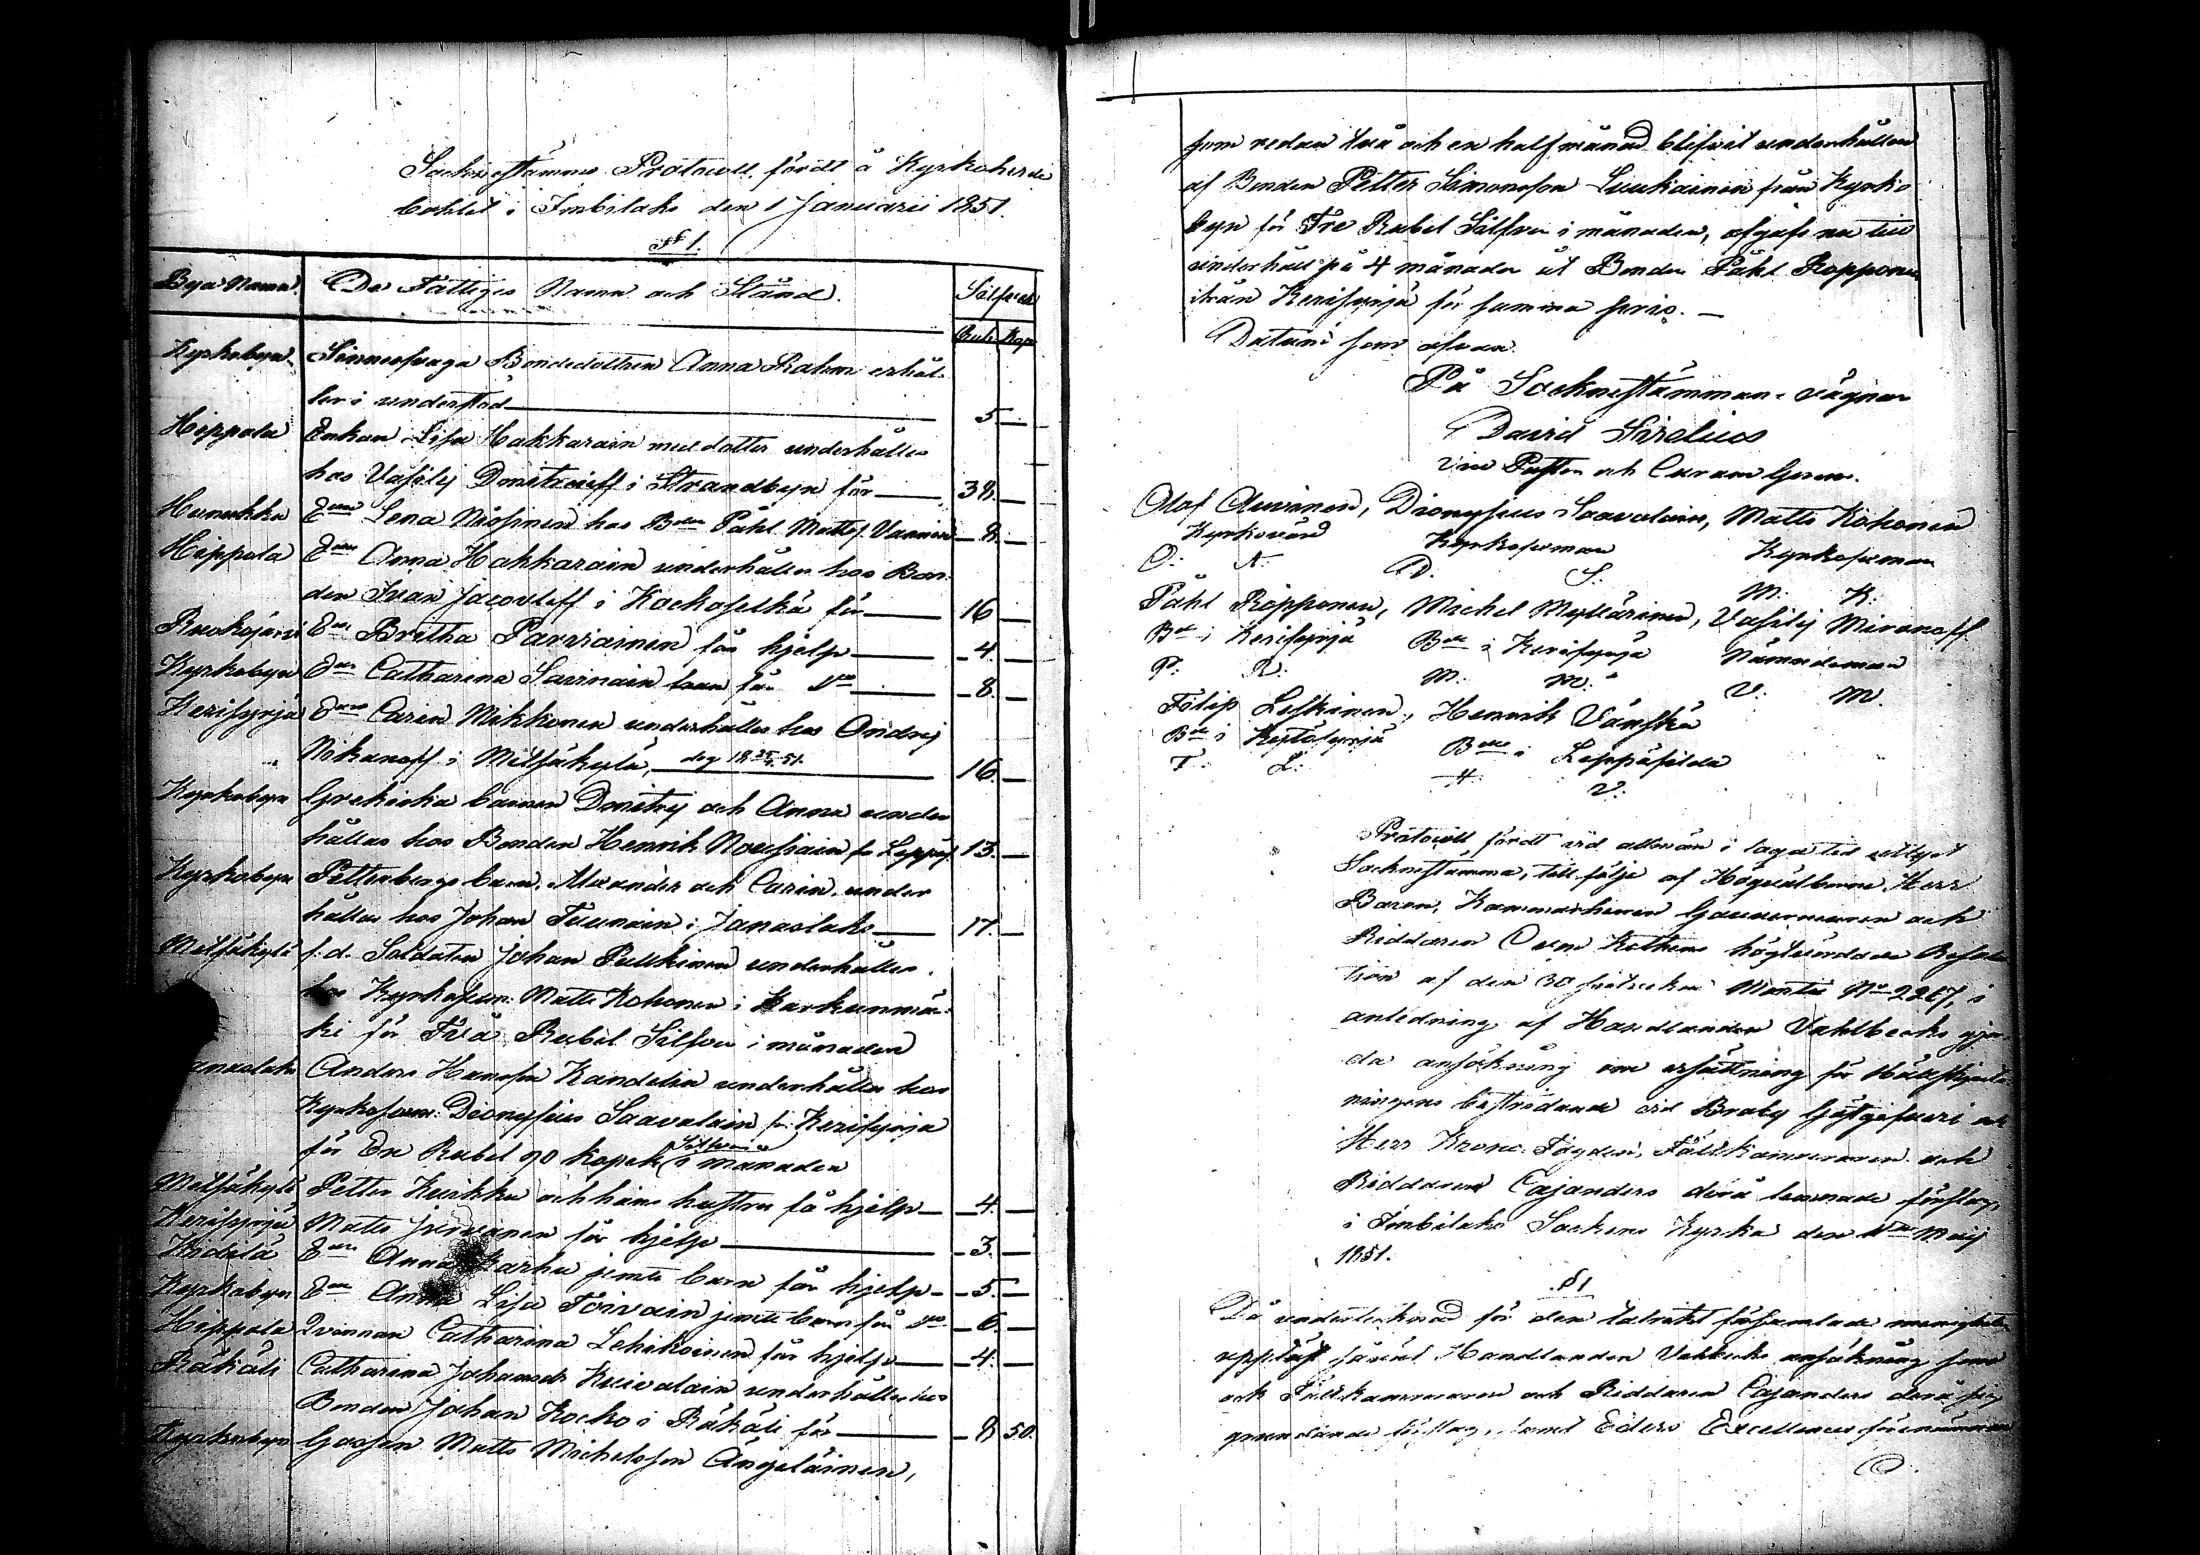 Sockne stämmo Protocoll fördt å Kyrkoherde
bohlet i Imbilaks den 1 Januarii 1851.
§ 1.
Bya Namn. De Fattiges Namn och Stånd. Silfver
Rub. Kop
Kyrkobyn Sinnesvaga Bondedottren Anna Rahm erhål-
ler i understöd 5.
Hippola Enkan Lisa Hakkarain med dotter underhålles
hos Vasilij Dmitrieff i Strandbyn för 38.
Hunukka Enn Lena Nissinen hos Bden Påhl Matts. Vanninen 8.
Hippola Enn Anna Hakkarain underhålles hos Bon-
den Ivan Jacovleff i Kockoselkä för 16
Ruokojärvi Enn Britha Parviainen får hjelp 4.
Kyrkobyn Enn Catharina Savinain får do 8.
Kerisyrjä Enn Carin Mikkonen underhålles hos Andrej
Nikanoff i Mitsäkylä, dog 18 25/4 51. 16.
Kyrkobyn Grekiska barnen Dmitrij och Anna under
hållas hos Bonden Henrik Nousiain fr Leppäs. 13.
Kyrkobyn Petterbergs barn, Alexander och Carin, under
hållas hos Johan Teunain i Janaslaks 17.
Mitsäkylä f.d. Soldaten Johan Pulkkinen underhålles
hos Kyrkoferm: Matts Kohonen i Karkunmä-
ki för Två Rubel Silfver i månaden
anaslaks Anders Hansson Kandelin underhålles hos
Kyrkoferm: Dionysius Saavalain fr. Kerisyrjä
för En Rubel 90 kopek Silfver i månaden
Mitsäkylä Petter Kuikka och hans hustru få hjelp 4.
Kerisyrjä Matts Jurvanen får hjelp 3.
Kidilä Enn Anna Karhu jemte barn får hjelp 5.
Kyrkobyn Enn Anna Lisa Toivain jemte barn får do 6.
Hippola Qvinnan Catharina Lehikoinen får hjelp 4.
Räkäli Catharina Johansdr Kuivalain underhålles hos
Bonden Johan Kocko i Räkäli för 8 50.
Kyrkobyn Gossen Matts Michelsson Ängeläinen,
som redan två och en half månad blifvit underhållen
af Bonden Petter Simonsson Luukainen från Kyrko
byn för Tre Rubel Silfver i månaden, afgafs nu till
underhåll på 4 månader åt Bonden Påhl Ropponen
ifrån Kerisyrjä för samma pris.
Datum som ofvan.
På Socknestämmans vägnar
David Sirelius
vice Pastor och Curam Gerens.
Olof Auvinen, Dionysius Saavalain, Matts Kohonen
Kyrkovärd Kyrkoferman Kyrkoferman
O. A. D. S. M. K.
Påhl Ropponen, Michel Myllärinen, Vasilij Mironoff
Bde i Kerisyrjä Bde i Kerisyrjä Nämndeman
P. R. M. M. V. M.
Filip Leskinen, Henrik Vänskä
Bde i Kerisyrjä Bde i Leppäsilda
F. L. H. V.
Protocoll, fördt vid allmän i laga tid utlyst
Socknestämma, till följe af Högvälborne Herr
Baron, Kammarherren Gouverneuren och
Riddaren von Kothens högtvördade Resolu
tion af den 30 sistvekne Martii No 2267, i
anledning af Handlanden Vahlbecks gjor-
da ansökning om ersättning för Hållskjuts
ningens bestridande vid Braby Gästgifveri och
Herr Krono Fogden, Fältkamreraren och
Riddaren Cajanders derå lemnade förslag
i Imbilaks Sockens Kyrka den Maij
1851.
§ 1
Då undertecknad för den talrikt församlade menigheten
uppläst såväl Handlanden Vahlbecks ansökning som
och Fältkamreraren och Riddaren Cajanders derå sig
grundande förslag, samt Eders Excellences förenämnda